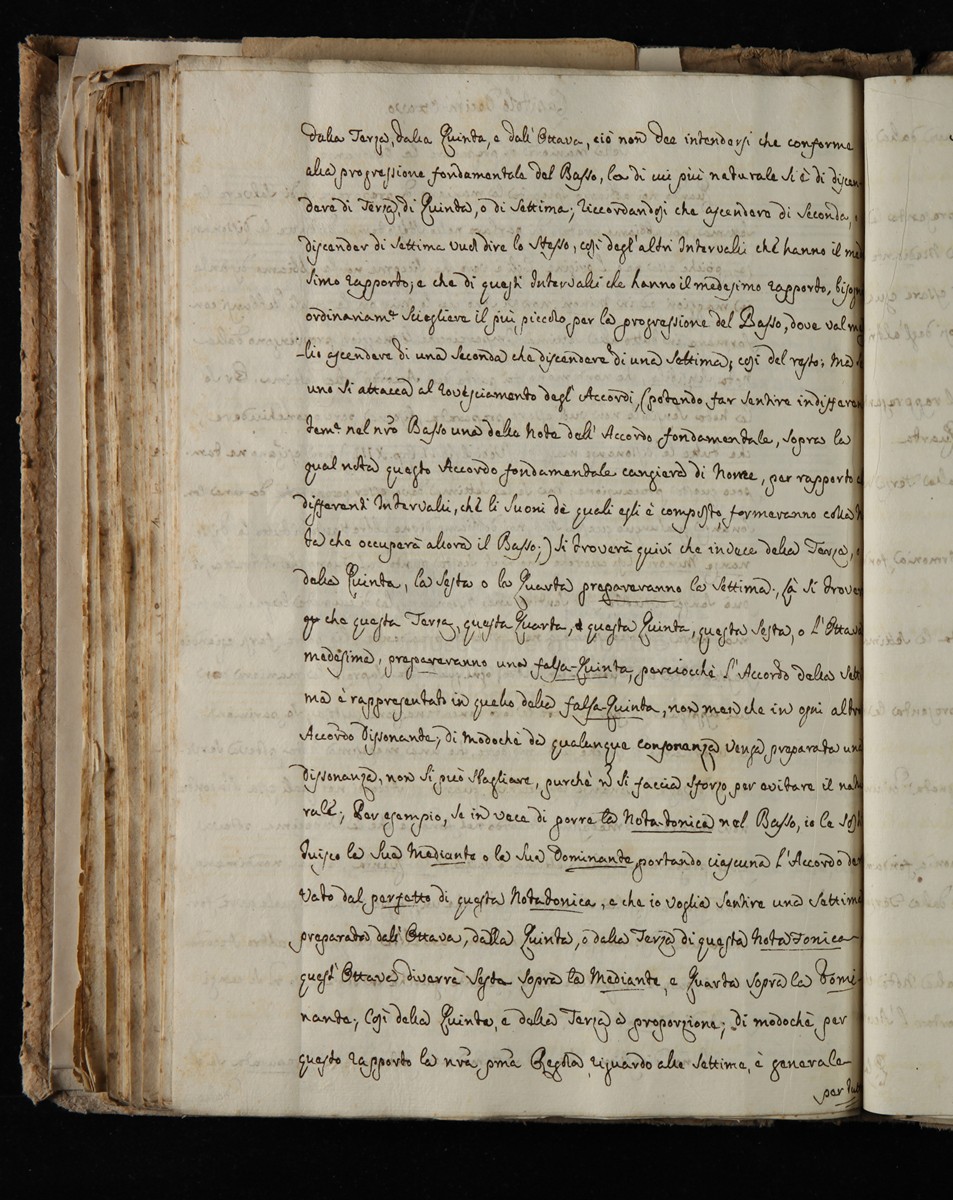 dalla Terza, dalla Quinta, e dall'Ottava, ciò non dee intendersi che conforme
alla progressione fondamentale del Basso, la di cui più naturale si è di discen
dere di Terza, di Quinta, o di Settima; riccordandosi che ascendere di Seconda,
discender di Settima vuol dire lo stesso, così degl'altri Intervalli che hanno il me
simo rapporto; e che di questi Intervalli che hanno il medesimo rapporto, bisogn
ordinariam.e scegliere il più piccolo per la progressione del Basso, dove val me
lio ascendere di una Seconda che discendere di una Settima; così del resto: Ma
uno si attacca al rovesciamento degl'Accordi, (potendo far sentire indifferen
tem.e nel nr̃o Basso una delle note dell'Accordo fondamentale, sopra la
qual nota questo Accordo fondamentale cangierà di Nome, per rapporto a
differenti Intervalli, che li Suoni de quali egli è composto, formeranno colla N
ta che occuperà allora il Basso;) Si troverà quivi che invece della Terza, o
della Quinta, la Sesta o la Quarta prepareranno la Settima, là si trove
che questa Terza, questa Quarta, questa Quinta, questa Sesta, o l'Ottava
medesima, prepareranno una falsa-Quinta, perciocchè l'Accordo della Sett
ma è rappresentato in quello della falsa-Quinta, non men che in ogni altro
Accordo Dissonante; di modochè da qualunque consonanza venga preparata una
dissonanza, non si può sbagliare, purchè ñ si faccia sforzo per evitare il natu
rale; Per esempio, se in vece di porre la Nota-tonica nel Basso, io le sosti
tuisco la sua Mediante o la sua Dominante, portando ciascuna l'Accordo de
vato dal perfetto di questa Nota-tonica, e che io voglia sentire una Settim
preparata dall'Ottava, dalla Quinta, o dalla Terza di questa Nota Tonica
quest'Ottava diverrà Sesta sopra la Mediante, e Quarta sopra la Domi
nante; Così della Quinta, e della Terza a proporzione; di modochè per
questo rapporto la nr̃a pm̃a Regola, riguardo alle Settime, è generale
per tut